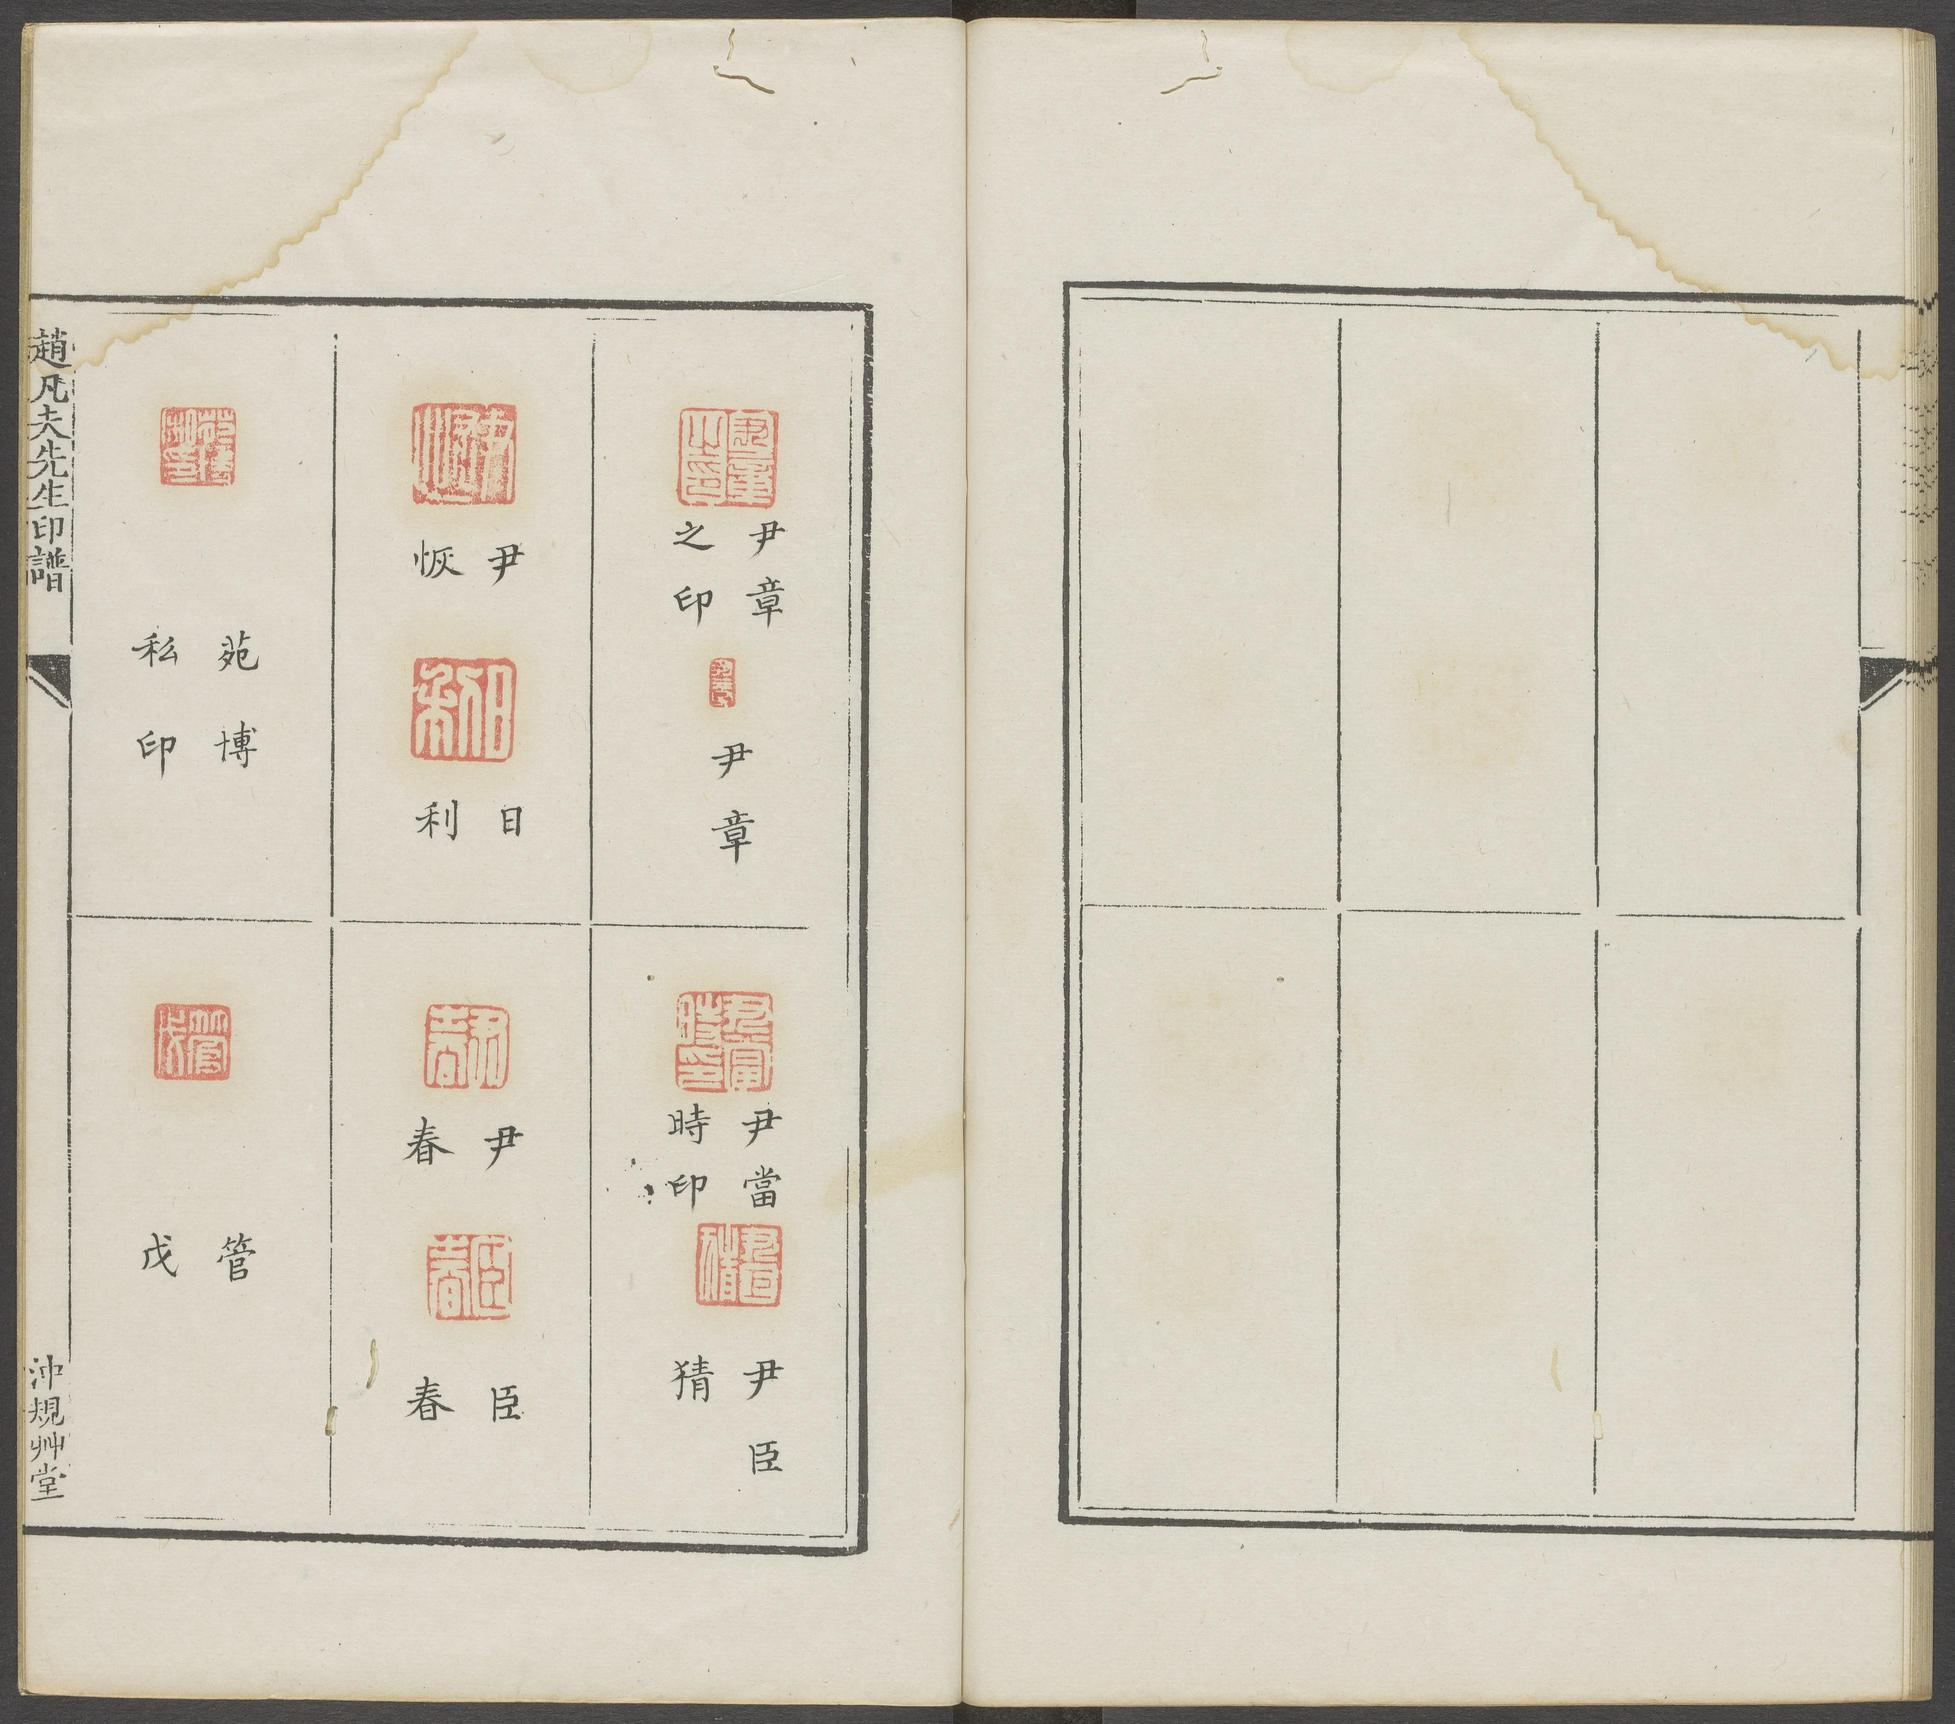 尹章
之印
尹章
尹當
時印
尹臣
猜
尹
恢
日
利
尹
春
臣
春
苑博
私印
管
戊
趙凡夫先生印譜
沖規艸堂